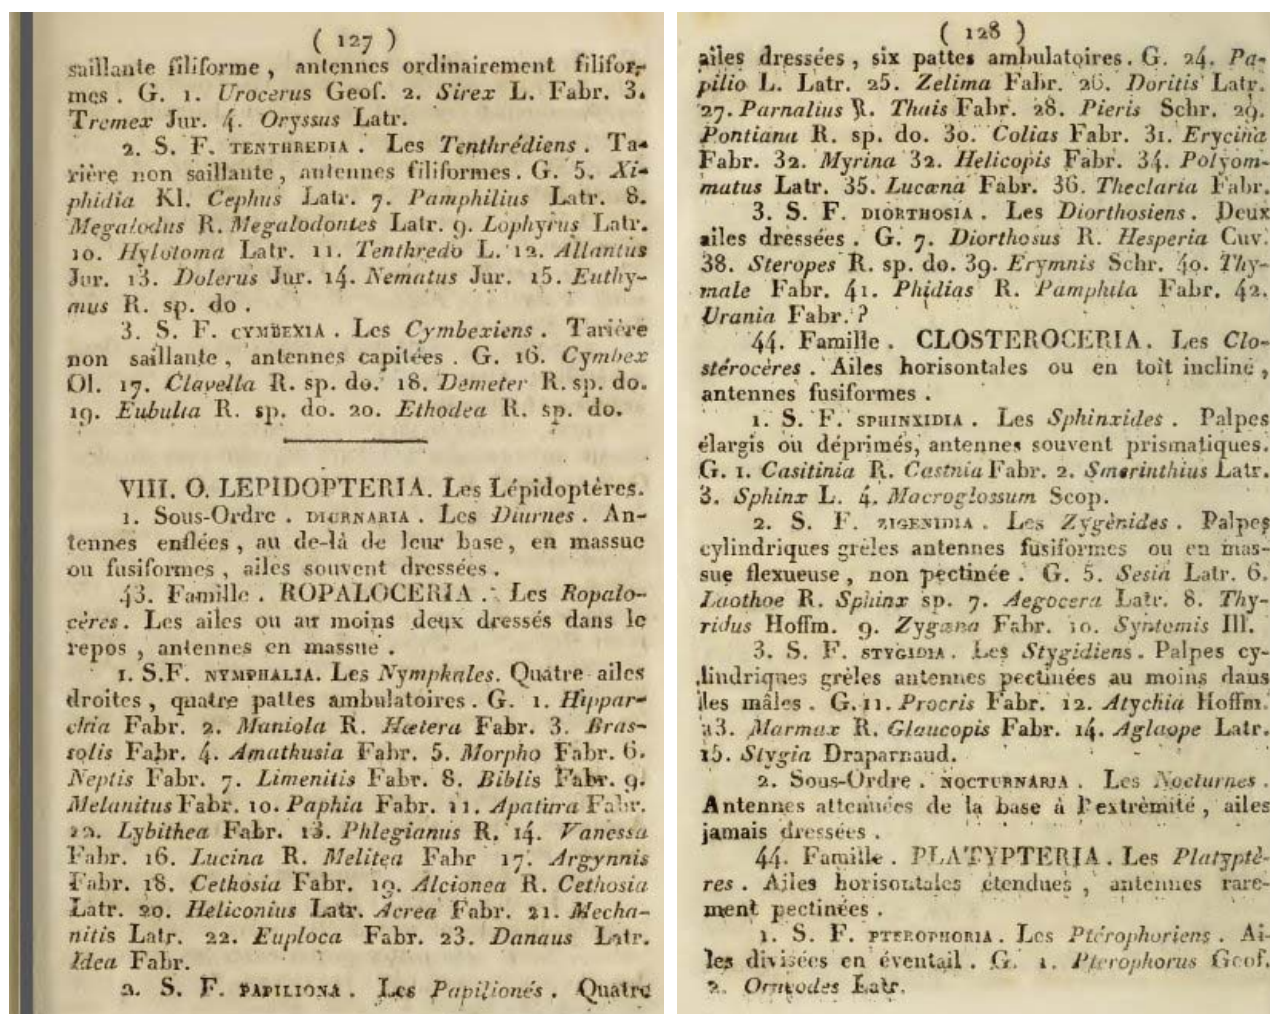 ( 127 )
saillante filiforme , antennes ordinairement filifor-
mes . G. 1. Urocerus Geof. 2. Sirex L. Fabr. 3.
Tremex Jur. 4. Oryssus Latr.
2. S. F. TENTHREDIA . Les Tenthrédiens . Ta-
rière non saillante , antennes filiformes . G. 5. Xi-
phidia Kl. Cephus Latr. 7. Pamphilius Latr. 8.
Megalodus R. Megalodontes Latr. 9. Lophyrus Latr.
10. Hylotoma Latr. 11. Tenthredo L. 12. Allantus
Jur. 13. Dolerus Jur. 14. Nematus Jur. 15. Euthy-
mus R. sp. do .
3. S. F. CYMBEXIA . Les Cymbexiens . Tarière
non saillante , antennes capitées . G. 16. Cymbex
Ol. 17. Clavella R. sp. do. 18. Demeter R. sp. do.
19. Eubulia R. sp. do. 20. Ethodea R. sp. do.
VIII. O. LEPIDOPTERIA. Les Lépidoptères.
1. Sous-Ordre . DIURNARIA . Les Diurnes . An-
tennes enflées , au de-là de leur base, en massue
ou fusiformes , ailes souvent dressées .
43. Famille . ROPALOCERIA . Les Ropalo-
cères . Les ailes ou au moins deux dressés dans le
repos , antennes en massue .
1. S.F. NYMPHALIA. Les Nymphales. Quatre ailes
droites , quatre pattes ambulatoires . G. 1. Hippar-
chia Fabr. 2. Maniola R. Hætera Fabr. 3. Bras-
solis Fabr. 4. Amathusia Fabr. 5. Morpho Fabr. 6.
Neptis Fabr. 7. Limenitis Fabr. 8. Biblis Fabr. 9.
Melanitus Fabr. 10. Paphia Fabr. 11. Apatura Fabr.
12. Lybithea Fabr. 13. Phlegianus R. 14. Vanessa
Fabr. 16. Lucina R. Melitea Fabr 17. Argynnis
Fabr. 18. Cethosia Fabr. 19. Alcionea R. Cethosia
Latr. 20. Heliconius Latr. Acrea Fabr. 21. Mecha-
nitis Latr. 22. Euploca Fabr. 23. Danaus Latr.
Idea Fabr.
2. S. F. PAPILIONA . Les Papilionés . Quatre
( 128 )
ailes dressées , six pattes ambulatoires . G. 24. Pa-
pilio L. Latr. 25. Zelima Fabr. 26. Doritis Latr.
27. Parnalius R. Thais Fabr. 28. Pieris Schr. 29.
Pontiana R. sp. do. 30. Colias Fabr. 31. Erycina
Fabr. 32. Myrina 32. Helicopis Fabr. 34. Polyom-
matus Latr. 35. Lucæna Fabr. 36. Theclaria Fabr.
3. S. F. DIORTHOSIA . Les Diorthosiens . Deux
ailes dressées . G. 7. Diorthosus R. Hesperia Cuv.
38. Steropes R. sp. do. 39. Erymnis Schr. 40. Thy-
male Fabr. 41. Phidias R. Pamphila Fabr. 42.
Urania Fabr. ?
44. Famille . CLOSTEROCERIA . Les Clo-
stérocères . Ailes horisontales ou en toit incliné ,
antennes fusiformes .
1. S. F. SPHINXIDIA . Les Sphinxides . Palpes
élargis ou déprimés, antennes souvent prismatiques.
G. 1. Casitinia R. Castnia Fabr. 2. Smerinthius Latr.
3. Sphinx L. 4. Macroglossum Scop.
2. S. F. ZIGENIDIA . Les Zygènides . Palpes
cylindriques grèles antennes fusiformes ou en mas-
sue flexueuse , non pectinée . G. 5. Sesia Latr. 6.
Laothoe R. Sphinx sp. 7. Aegocera Latr. 8. Thy-
ridus Hoffm. 9. Zygæna Fabr. 10. Syntomis Ill.
3. S. F. STYGIDIA . Les Stygidiens . Palpes cy-
lindriques grèles antennes pectinées au moins dans
les mâles . G. 11. Procris Fabr. 12. Atychia Hoffm.
13. Marmax R. Glaucopis Fabr. 14. Aglaope Latr.
15. Stygia Draparnaud.
2. Sous-Ordre . NOCTURNARIA . Les Nocturnes .
Antennes attenuées de la base à l'extrèmité , ailes
jamais dressées .
44. Famille . PLATYPTERIA . Les Platyptè-
res . Ailes horisontales étendues , antennes rare-
ment pectinées .
1. S. F. PTEROPHORIA . Les Ptérophoriens . Ai-
les divisées en éventail . G. 1. Pterophorus Geof.
2. Orneodes Latr.